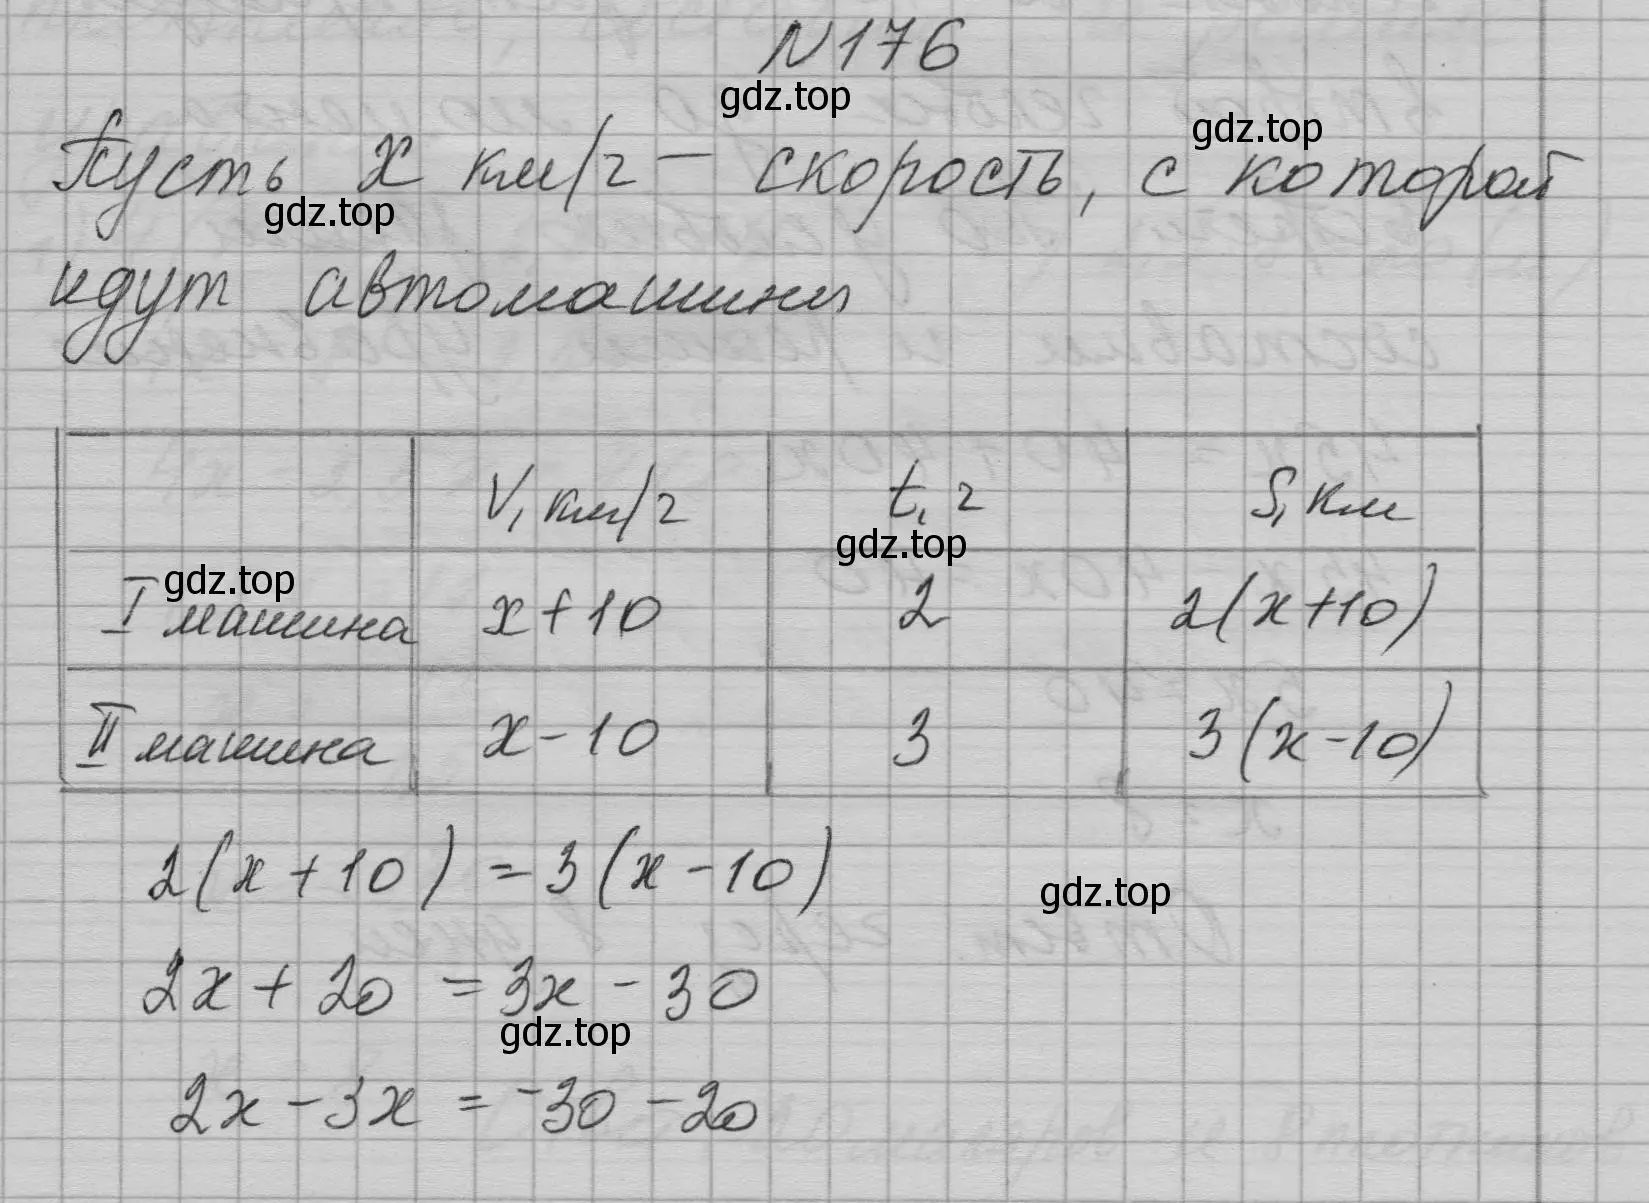 №176
gdz.top
gdz.top
Пусть х км/ч — скорость, с которой
gdz.top
идут автомашины
V, км/ч t, ч S, км
gdz.top
gdz.top
I машина х+10 2 2(х+10)
II машина х-10 3 3(х-10)
2(х+10) = 3(х-10)
gdz.top
2х + 20 = 3х - 30
gdz.top
2х - 3х = -30 - 20